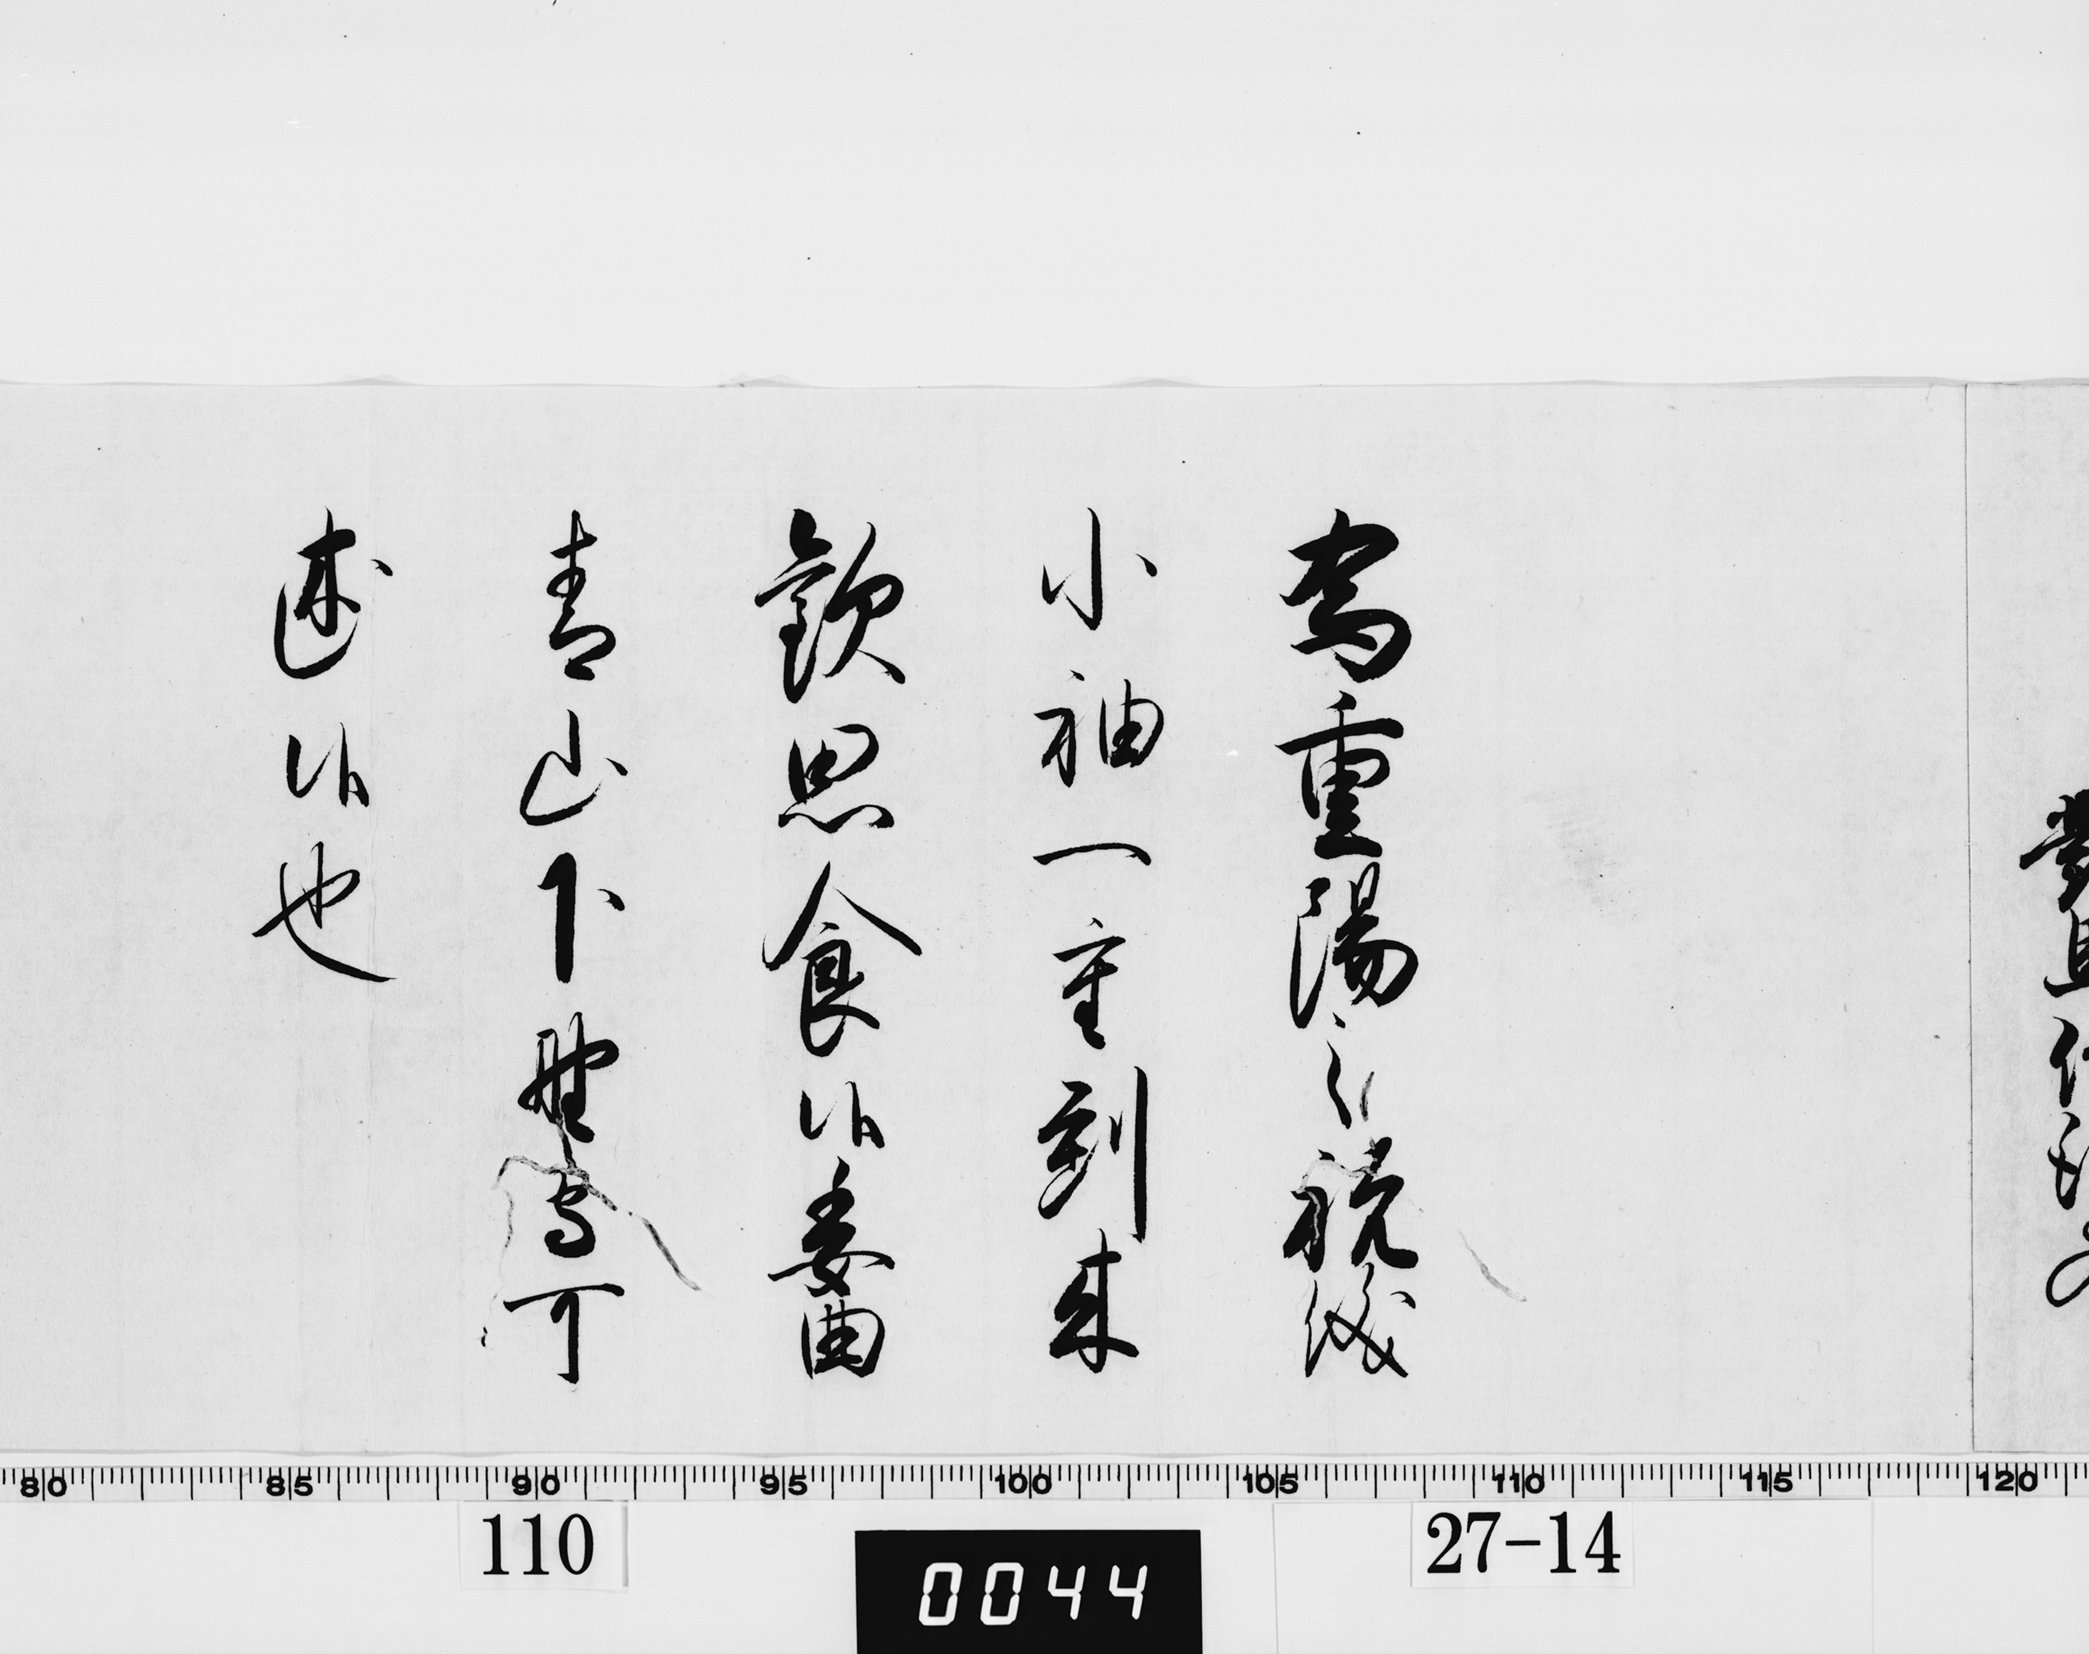 為重陽之祝儀
小袖一重到来
歓思食候委曲
青山下野守可
述候也
80 85 90 95 100 105 110 115 120
110
0044
27-14